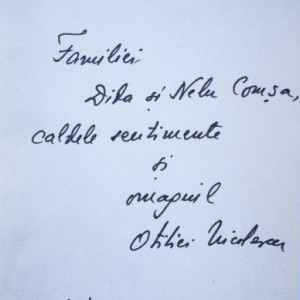 Familiei
Dida și Nelu Comșa,
caldele sentimente
și
omagiul
Otiliei Nicolescu